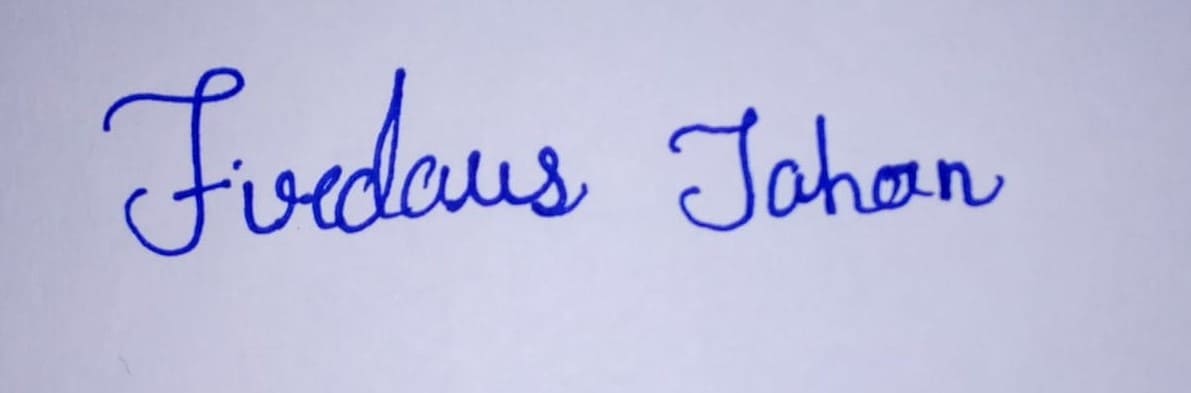 Firdaus Jahan